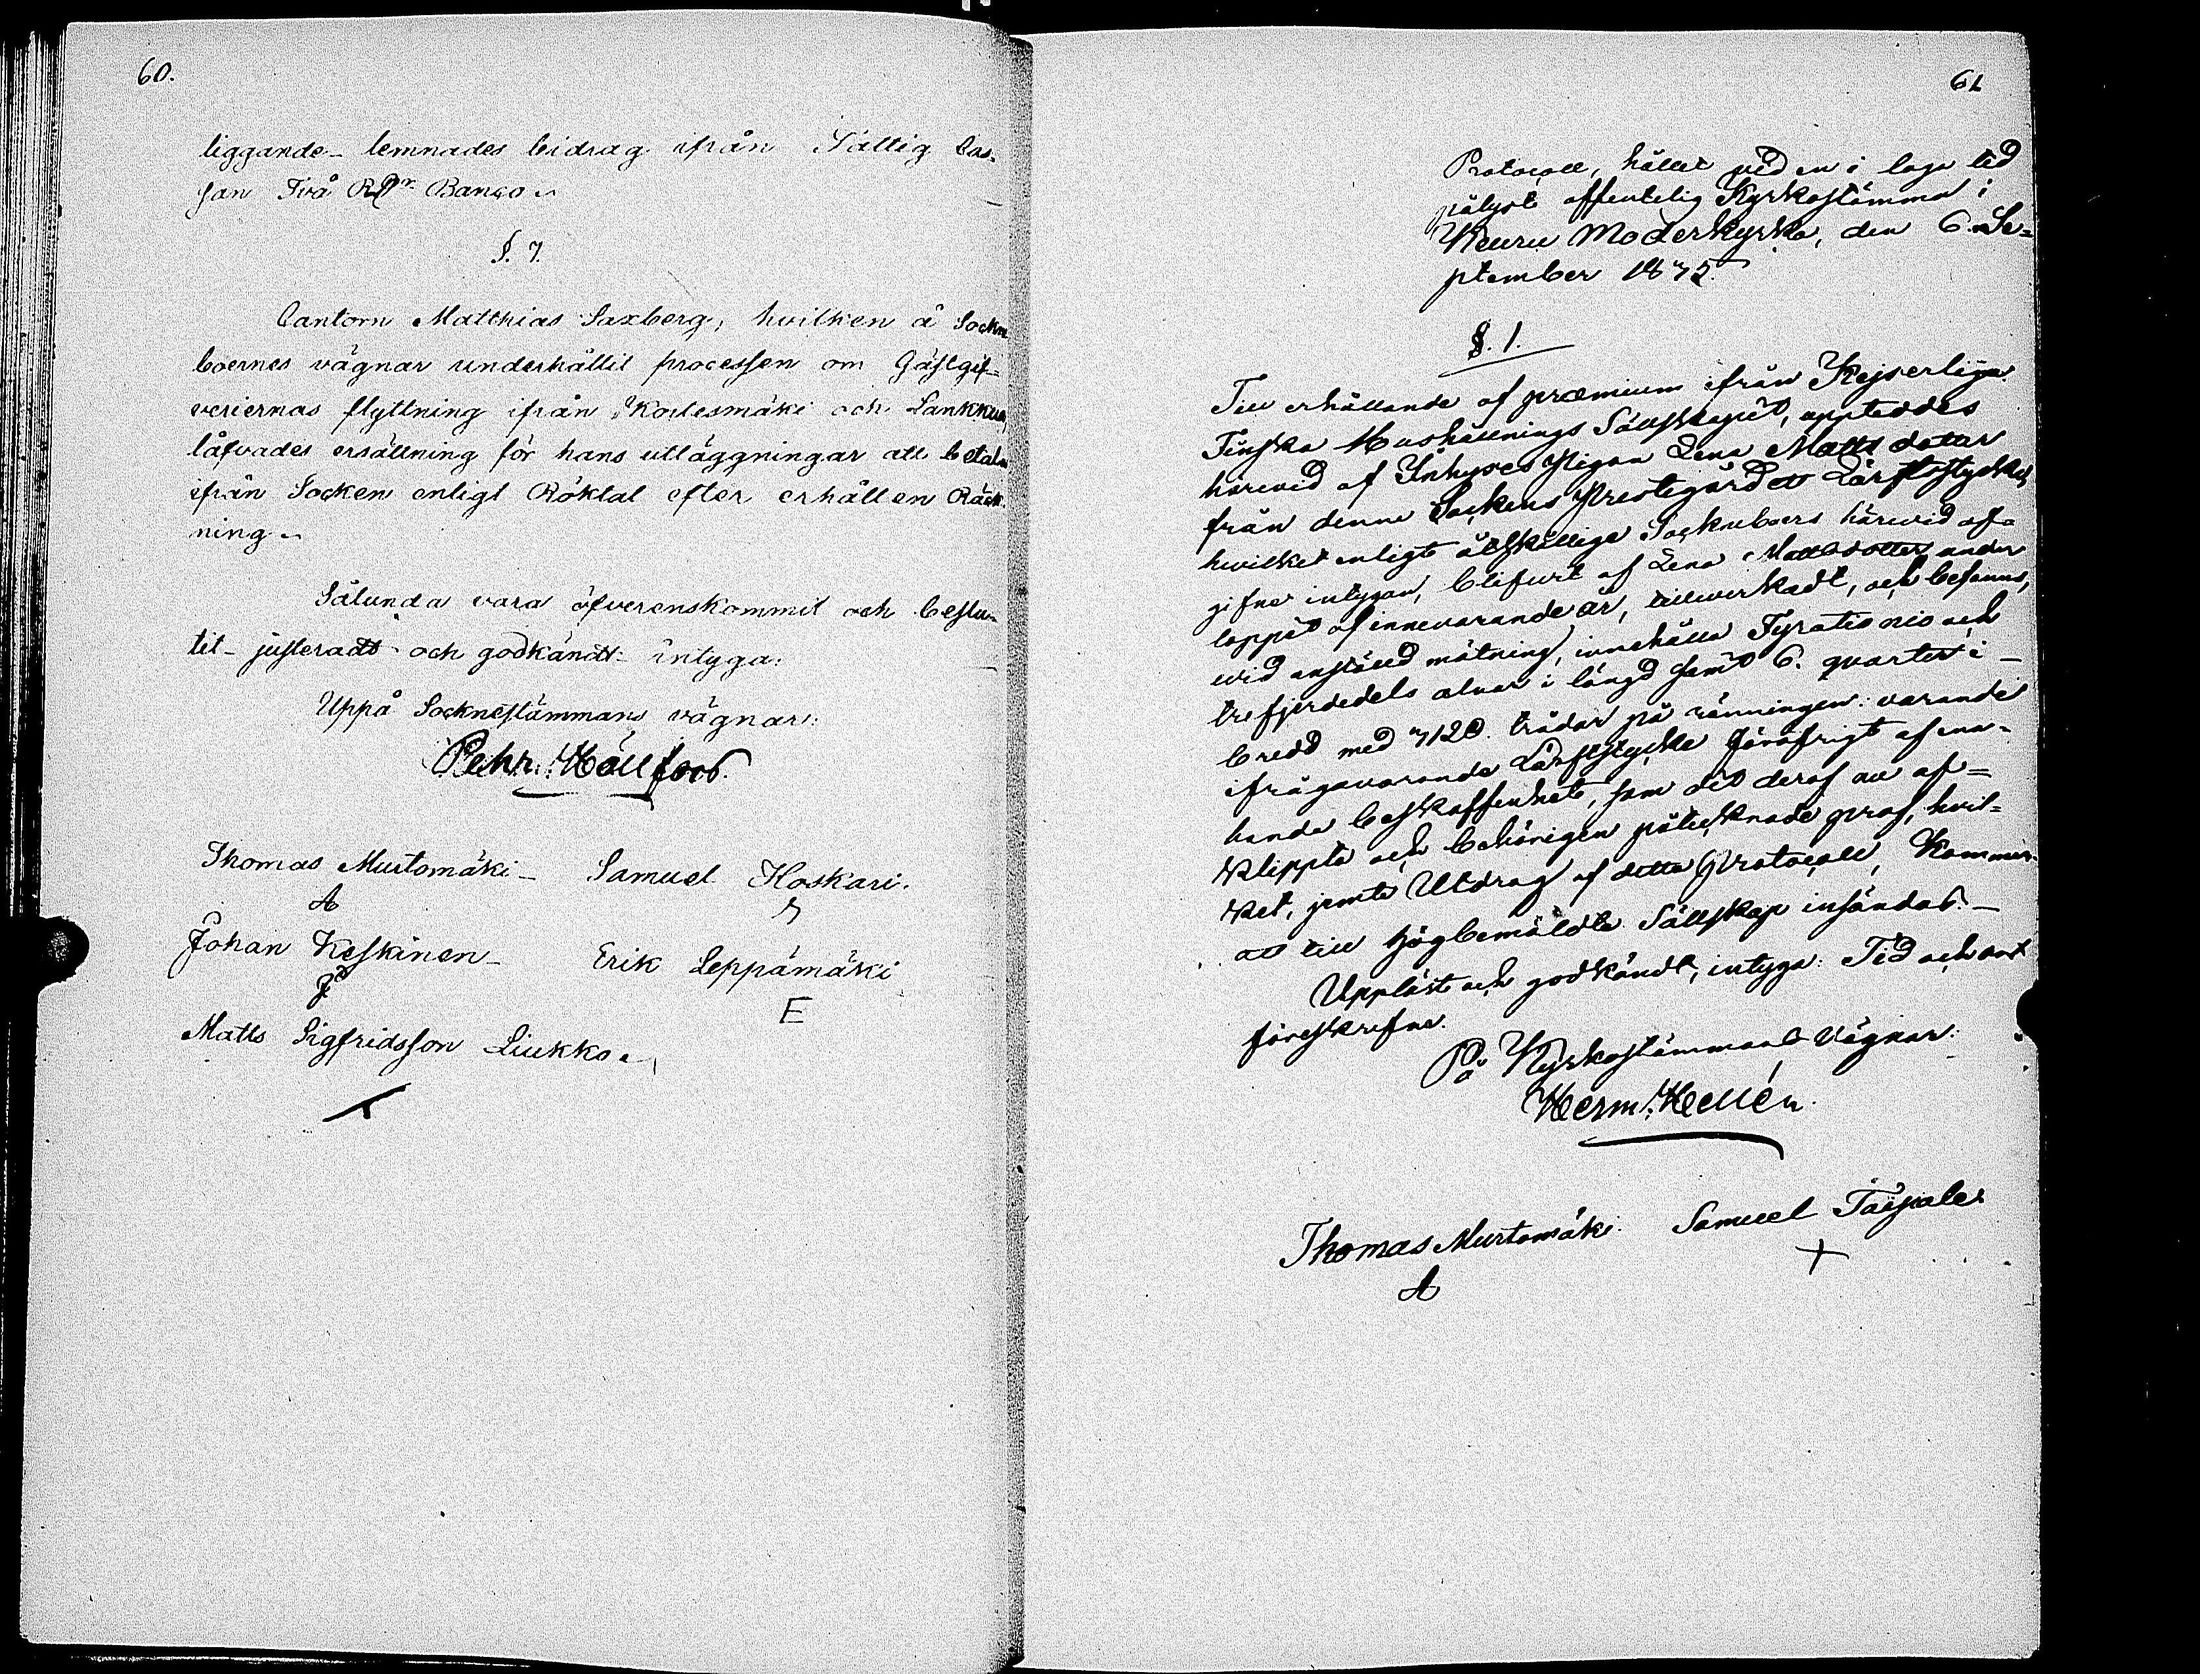 60.
liggande - lemnades bidrag ifrån Fattig Cas-
san Två RDr Banco.
§. 7.
Cantorn Matthias Saxberg, hvilken å Sockne
boernes vägnar underhållit processen om Gästgif-
veriernas flyttning ifrån Kortesmäki och Lankkua,
låfvades ersättning för hans utläggningar att betalas
ifrån Socken enligt Röktal efter erhållen Räck-
ning.
Sålunda vara öfverenskommit och beslu-
tit - justeradt - och godkändt - intyga:
Uppå Socknestämmans vägnar:
Pehr Hällfors.
Thomas Murtomäki - Samuel Hoskari.
A
Johan Keskinen - Erik Leppämäki
E
Matts Sigfridsson Liukko.
61
Protocoll, hållet vid en i laga tid
pålyst offentelig Kyrkostämma i
Keuru Moderkyrka, den 6. Se-
ptember 1835.
§. 1.
Till erhållande af præmium ifrån Kejserliga
Finska Hushållnings Sällskapet, uppteddes
härvid af Inhyses Pigan Lena Matts dotter
från denne Sockens Prestegård ett Lärftstycke,
hvilket enligt åtskillige Sockneboers härvid af-
gifne intygan, blifvit af Lena Mattsdotter under
loppet af innevarande år, tillverkadt, och befanns,
vid anställd mätning, innehålla Fyratio nio och
trefjerdedels alnar i längd samt 6. quarter i
bredd med 7120. trådar på ränningen: varande
ifrågavarande Lärftstycke föröfrigt af ena-
handa beskaffenhet, som det deraf nu af-
klippta och behörigen påtecknade prof, hvil-
ket, jemte Utdrag af detta Protocoll, kommer
att till högbemäldte Sällskap insändas. -
Uppläst och godkändt, intyga: Tid och ort
föreskrifne.
På Kyrkostämmans Vägnar:
Herm. Hellén.
Thomas Murtomäki. Samuel Taipale
A +